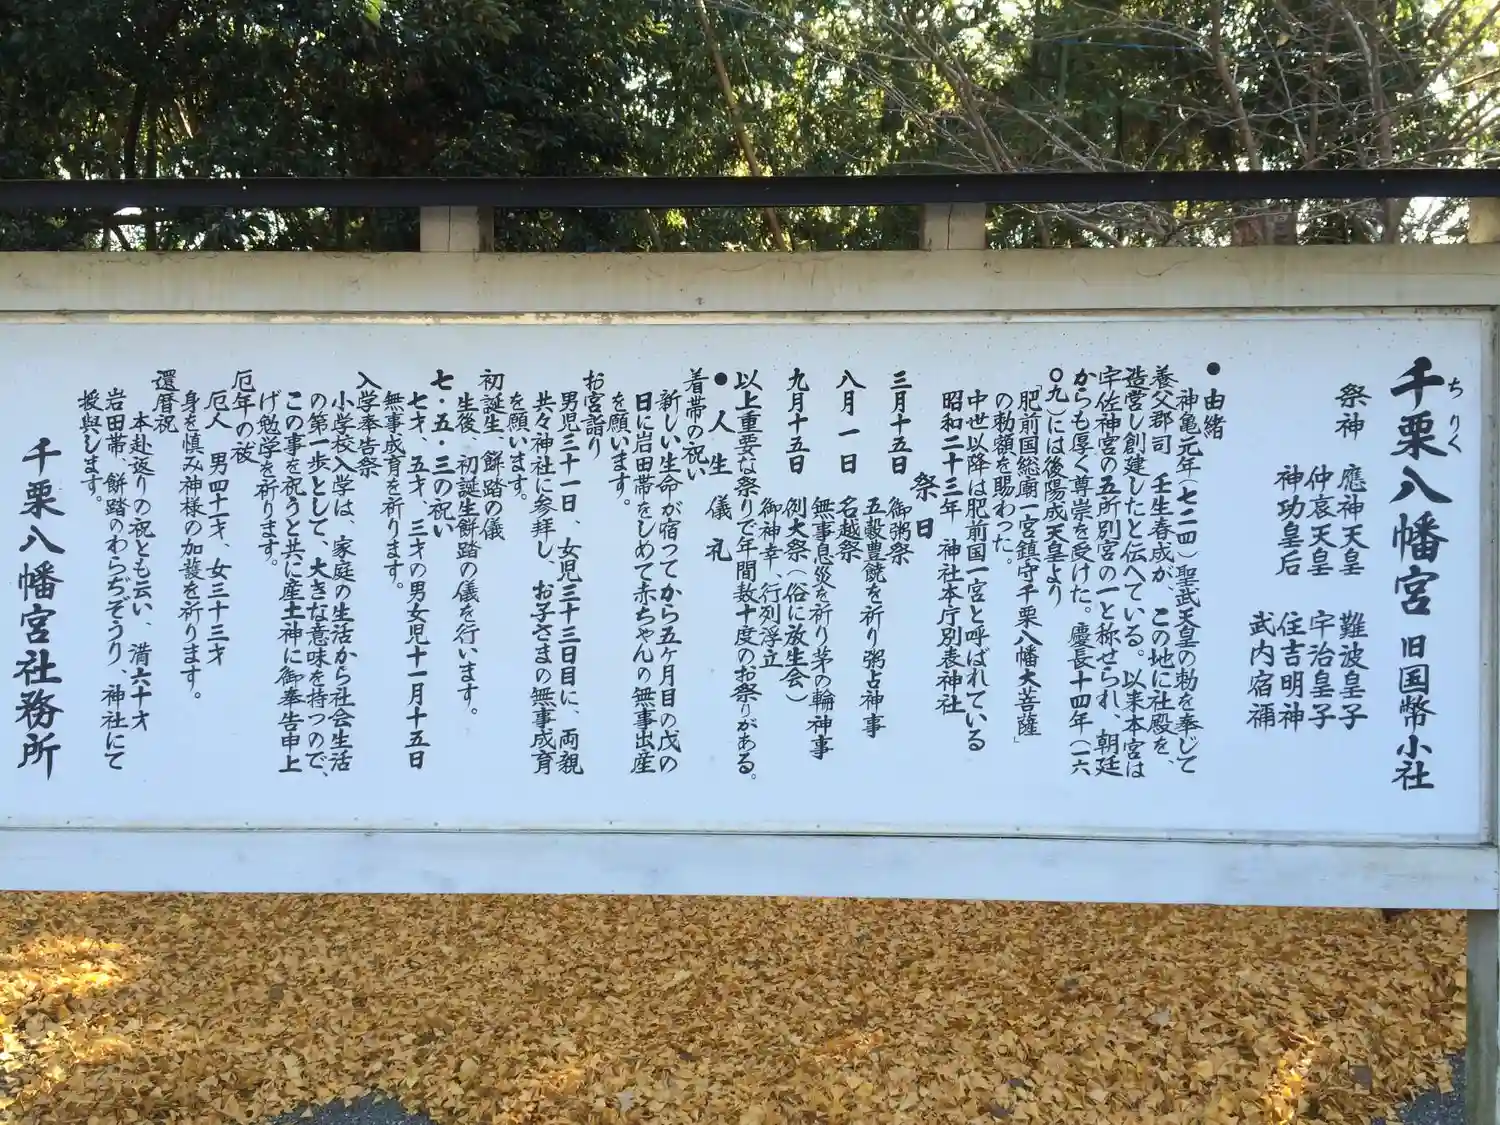 千栗八幡宮 旧国幣小社
ちりく
祭神 應神天皇 難波皇子
仲哀天皇 宇治皇子
神功皇后 住吉明神
武内宿禰
●由緒
神亀元年(七二四)聖武天皇の勅を奉じて
養父郡司 壬生春成が、この地に社殿を、
造営し創建したと伝へている。以来本宮は
宇佐神宮の五所別宮の一と称せられ、朝廷
からも厚く尊崇を受けた。慶長十四年(一六
〇九)には後陽成天皇より
「肥前国総廟一宮鎮守千栗八幡大菩薩」
の勅額を賜わった。
中世以降は肥前国一宮と呼ばれている
昭和二十三年 神社本庁別表神社
祭日
三月十五日 御粥祭
五穀豊饒を祈り粥占神事
八月一日 名越祭
無事息災を祈り茅の輪神事
九月十五日 例大祭(俗に放生会)
御神幸、行列浮立
以上重要な祭りで年間数十度のお祭りがある。
●人生儀礼
着帯の祝い
新しい生命が宿つてから五ケ月目の戊の
日に岩田帯をしめて赤ちゃんの無事出産
を願います。
お宮詣り
男児三十一日、女児三十三日目に、両親
共々神社に参拝し、お子さまの無事成育
を願います。
初誕生、餅踏の儀
生後、初誕生餅踏の儀を行います。
七・五・三の祝い
七才、五才、三才の男女児十一月十五日
無事成育を祈ります。
入学奉告祭
小学校入学は、家庭の生活から社会生活
の第一歩として、大きな意味を持つので、
この事を祝うと共に産土神に御奉告申上
げ勉学を祈ります。
厄年の祓
厄人 男四十一才、女三十三才
身を慎み神様の加護を祈ります。
還暦祝
本赴返りの祝とも云い、満六十才
岩田帯、餅踏のわらぢぞうり、神社にて
授與します。
千栗八幡宮社務所